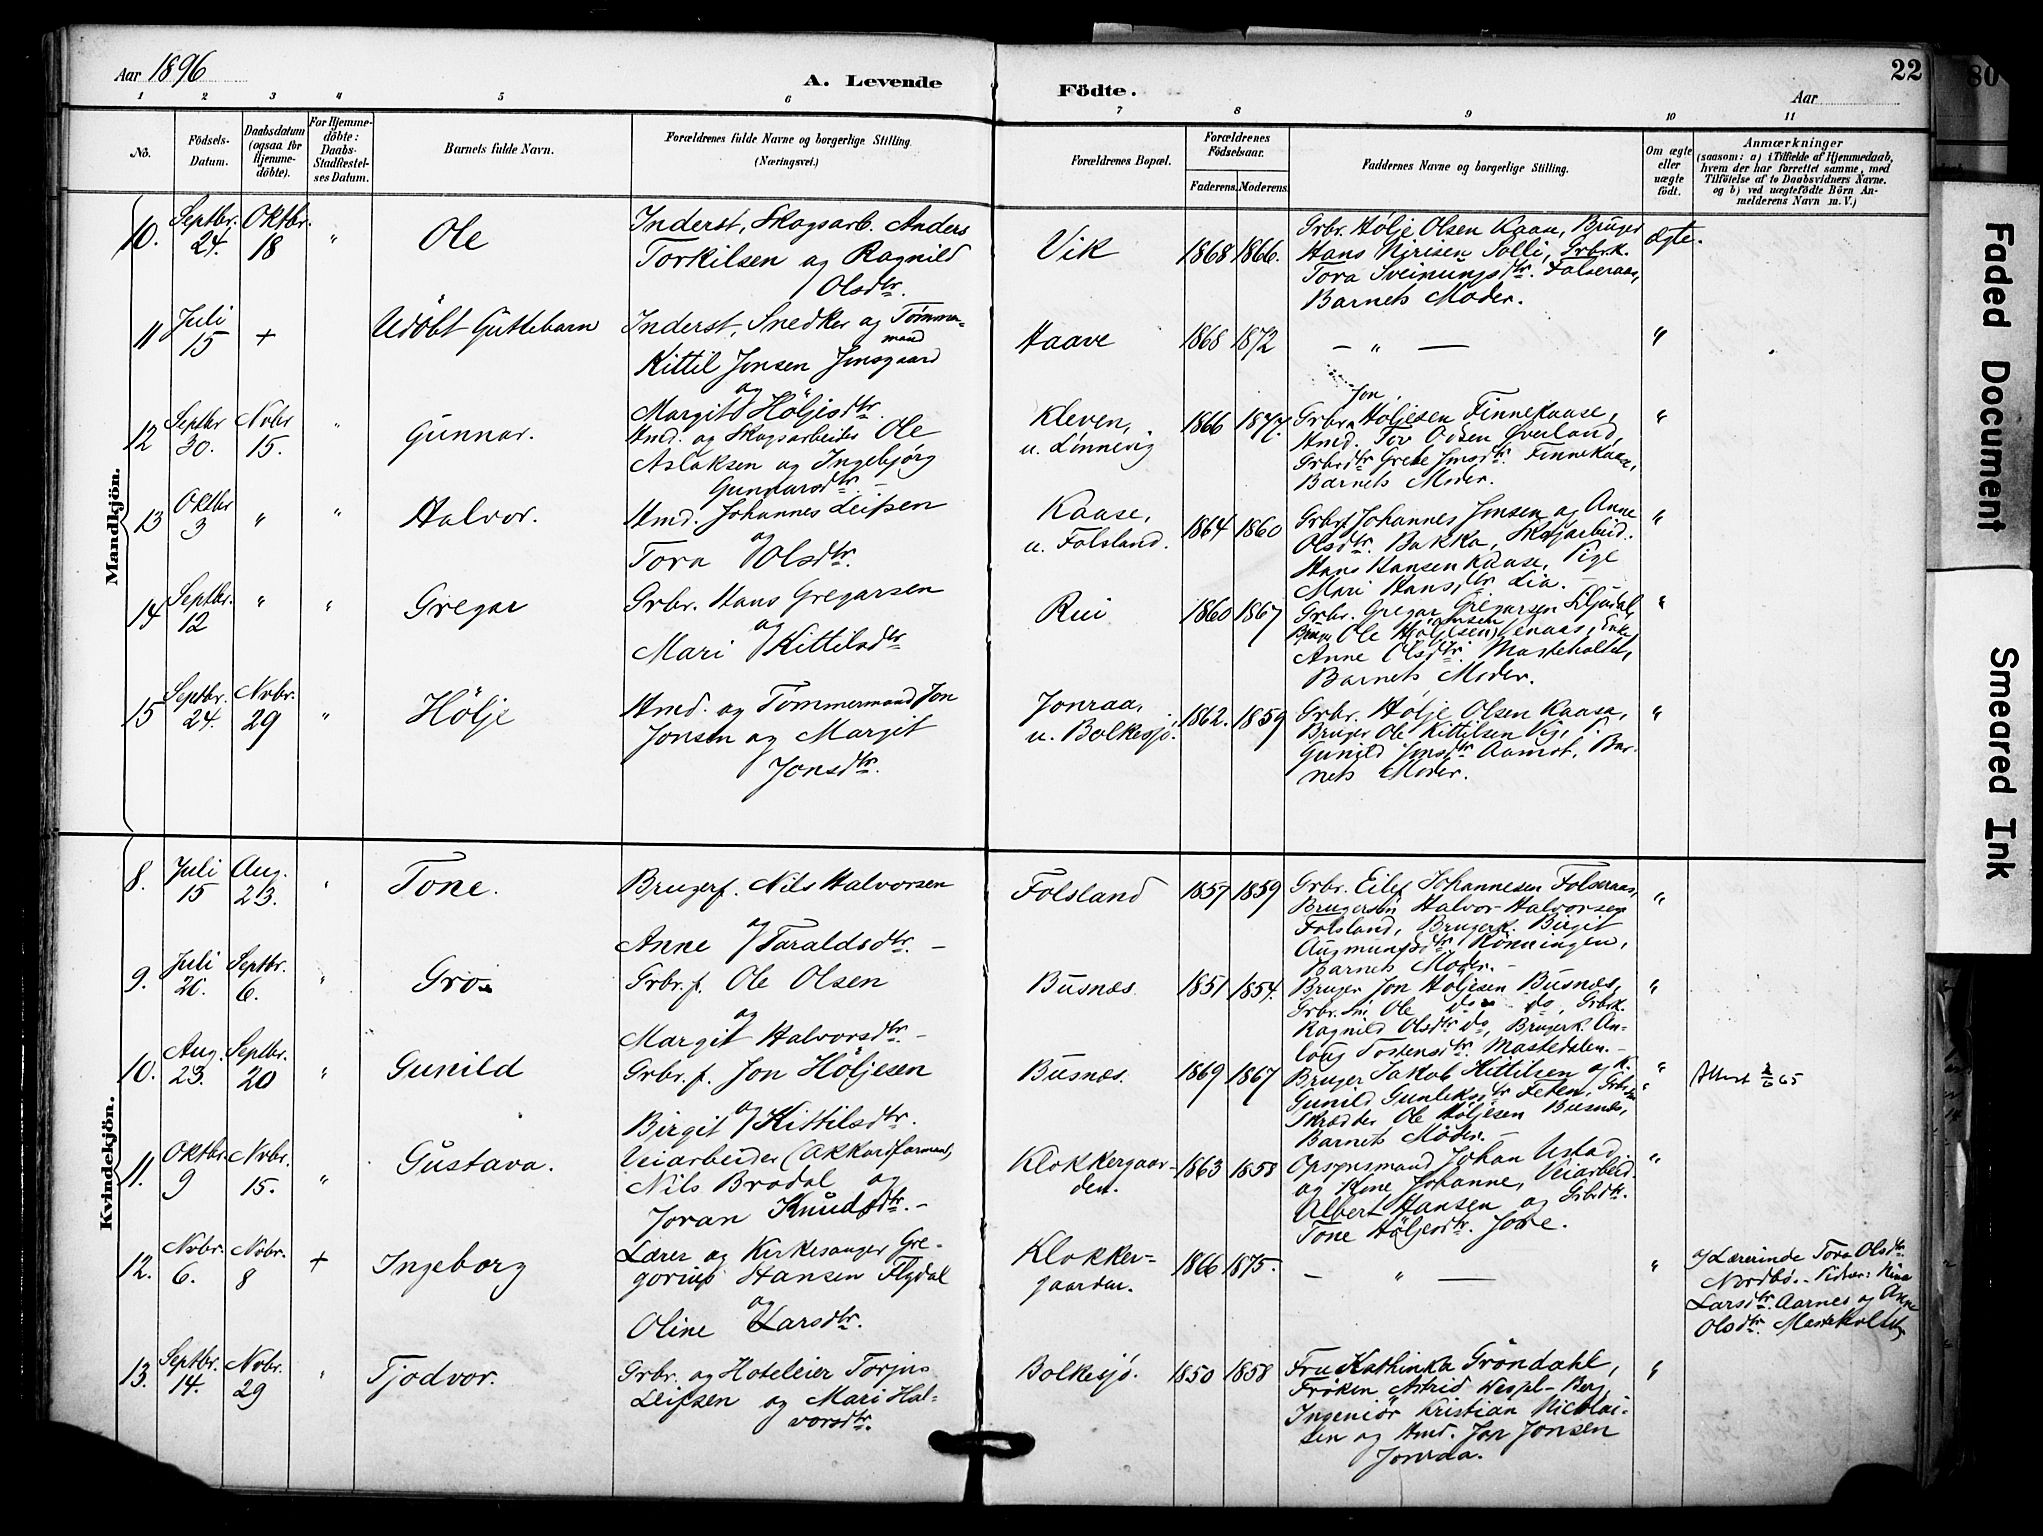 Aar 1896
A. Levende
Födte.
22
80
Aar
1 2 3 4 5 6 7 8 9 10 11
No.
Födsels-
Datum.
Daabsdatum
(ogsaa for
Hjemme-
döbte).
For Hjemme-
döbte:
Daabs-
Stadfæstel-
ses Datum.
Barnets fulde Navn.
Forældrenes fulde Navne og borgerlige Stilling
(Næringsvei.)
Forældrenes Bopæl.
Forældrenes
Födselsaar.
Faderens. Moderens.
Faddernes Navne og borgerlige Stilling.
Om ægte
eller
uægte
födt.
Anmærkninger
(saasom: a) i Tilfælde af Hjemmedaab,
hvem der har forrettet samme, med
Tilföielse af to Daabsvidners Navne.
og b) ved uægtefödte Börn An-
melderens Navn m. V.)
Mandkjön.
10. Septbr. 24. Oktbr. 18 " Ole
Inderst, Skogsarb. Anders
Torkilsen og Ragnild
Olsdtr.
Vik 1868 1866.
Grbr. Hølje Olsen Kaasa, Bruger
Hans Nirisen Solli, Grbr.k.
Tora Sveinungsdtr. Folseraas,
Barnets Moder.
ægte.
11 Juli 15 + Udöbt Guttebarn
Inderst, Snedker og Tømmer-
mand
Kittil Jonsen Jonsgaard
og
Margit Höljesdtr.
Haave 1868 1872
— " —
"
12 Septbr 30. Novbr 15. " Gunnar.
Hmd. og Skogsarbeider Ole
Aslaksen og Ingebjörg
Gunnarsdtr. –
Kleven,
u. Lönnevig
1866 1877.
Jon
Grbr. Høljesen Finnekaase,
Hmd. Tov Olsen Øverland,
Grbrdtr Grete Jonsdtr. Finnekaas,
Barnets Moder.
"
13 Oktbr 3 " " Halvor.
Hmd. Johannes Leifsen
og
Tora Olsdtr.
Kaase,
u. Folsland.
1864 1860
Grbrf Johannes Jonsen og Anne
Olsdtr. Bakka, Skogarbeid.
Hans Hansen Kaase, Pige
Mari Hansdtr Lia. –
"
14 Septbr. 12 " " Gregar
Grbr. Hans Gregarsen
og
Mari Kittilsdtr
Rui 1860 1867
Grbr. Gregar Gregarsen
Bruger Ole Høljesen
Anne Olsdtr. Masteholtet,
Barnets Moder.
"
15 Septbr. 24. Novbr. 29 " Hölje
Hmd. og Tømmermand Jon
Jonsen og Margit
Jonsdtr.
Jonraa,
u. Bolkesjö.
1862. 1859
Grbr. Hølje Olsen Kaasa,
Bruger Ole Kittilsen Vig, P.
Gunild Jonsdtr Aamot, Bar-
nets Moder.
"
Kvindekjön.
8. Juli 15 Aug. 23. " Tone.
Brugerf. Nils Halvorsen
og
Anne Taraldsdtr. –
Folsland 1857 1859
Grbr. Eilef Johannesen Folseraas,
Brugersön Halvor Halvorsen
Folsland, Brugerk. Birgit
Augmundsdtr Rönningen,
Barnets Moder. –
"
9. Juli 26. Septbr. 6. " Gro
Grbr.f. Ole Olsen
og
Margit Halvorsdtr. –
Busnæs 1851 1854.
Bruger Jon Höljesen Busnæs,
Grbr. Sön Ole do do, Grbr.k.
Ragnild Olsdtr do, Brugerk. An-
laug Tostensdtr. Mastedalen. –
"
10. Aug. 23. Septbr. 20 " Gunild
Grbr.f. Jon Höljesen
og
Birgit Kittilsdtr.
Busnæs. 1869 1867
Bruger Jakob Kittilsen og K.
Gunild Gunleiksdtr Feten,
Skrædder Ole Höljesen Busnæs,
Barnets Moder. –
"
65
11. Oktbr. 9 Novbr. 15. " Gustava.
Veiarbeider (Akkordformand)
Nils Brodal og
Joran Knudsdtr. –
Klokkergaar-
den.
1863 1858
Opsynsmand Johan Ustad,
og Kone Johanne, Veiarbeid.
Albert Hansen og Grbrdtr.
Tone Höljesdtr. Jore.
"
12. Novbr. 6. Novbr. 8 + Ingeborg
Lærer og Kirkesanger Gre-
gorius Hansen Flydal
og
Oline Larsdtr.
Klokker-
gaarden.
1866 1875.
— " —
"
af Lærerinde Tora Olsdtr.
Nordbö. –
Larsdtr. Aarnes og Anne
Olsdtr. Masteholtet
13. Septbr. 14. Novbr. 29 " Tjodvor.
Grbr. og Hoteleier Torjus
Leifsen og Mari Hal-
vorsdtr.
Bolkesjö. 1850 1858
Fru Kathinka Gröndahl,
Fröken Astrid Berg,
Ingeniör Kristian Nicolai-
sen og Hmd. Jon Jonsen
Jonraa.
"
Faded Document
Smeared Ink